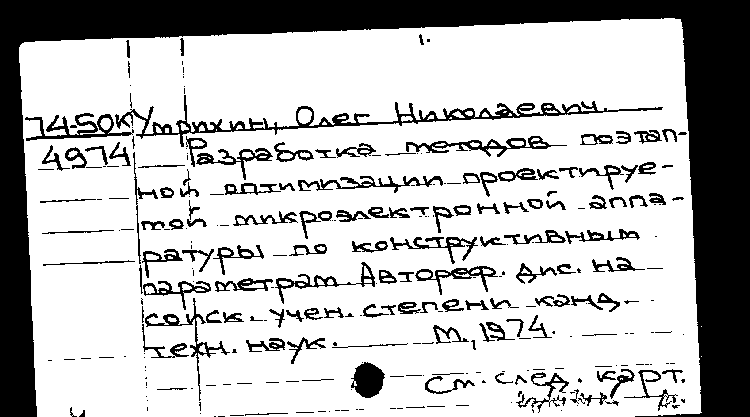 1.
74-50К Умрихин, Олег Николаевич.
4974 Разработка методов поэтап-
ной оптимизации проектируе-
мой микроэлектронной аппа-
ратуры по конструктивным
параметрам. Автореф. дис. на
соиск. учен. степени канд.
техн. наук. М., 1974.
См. след. карт.